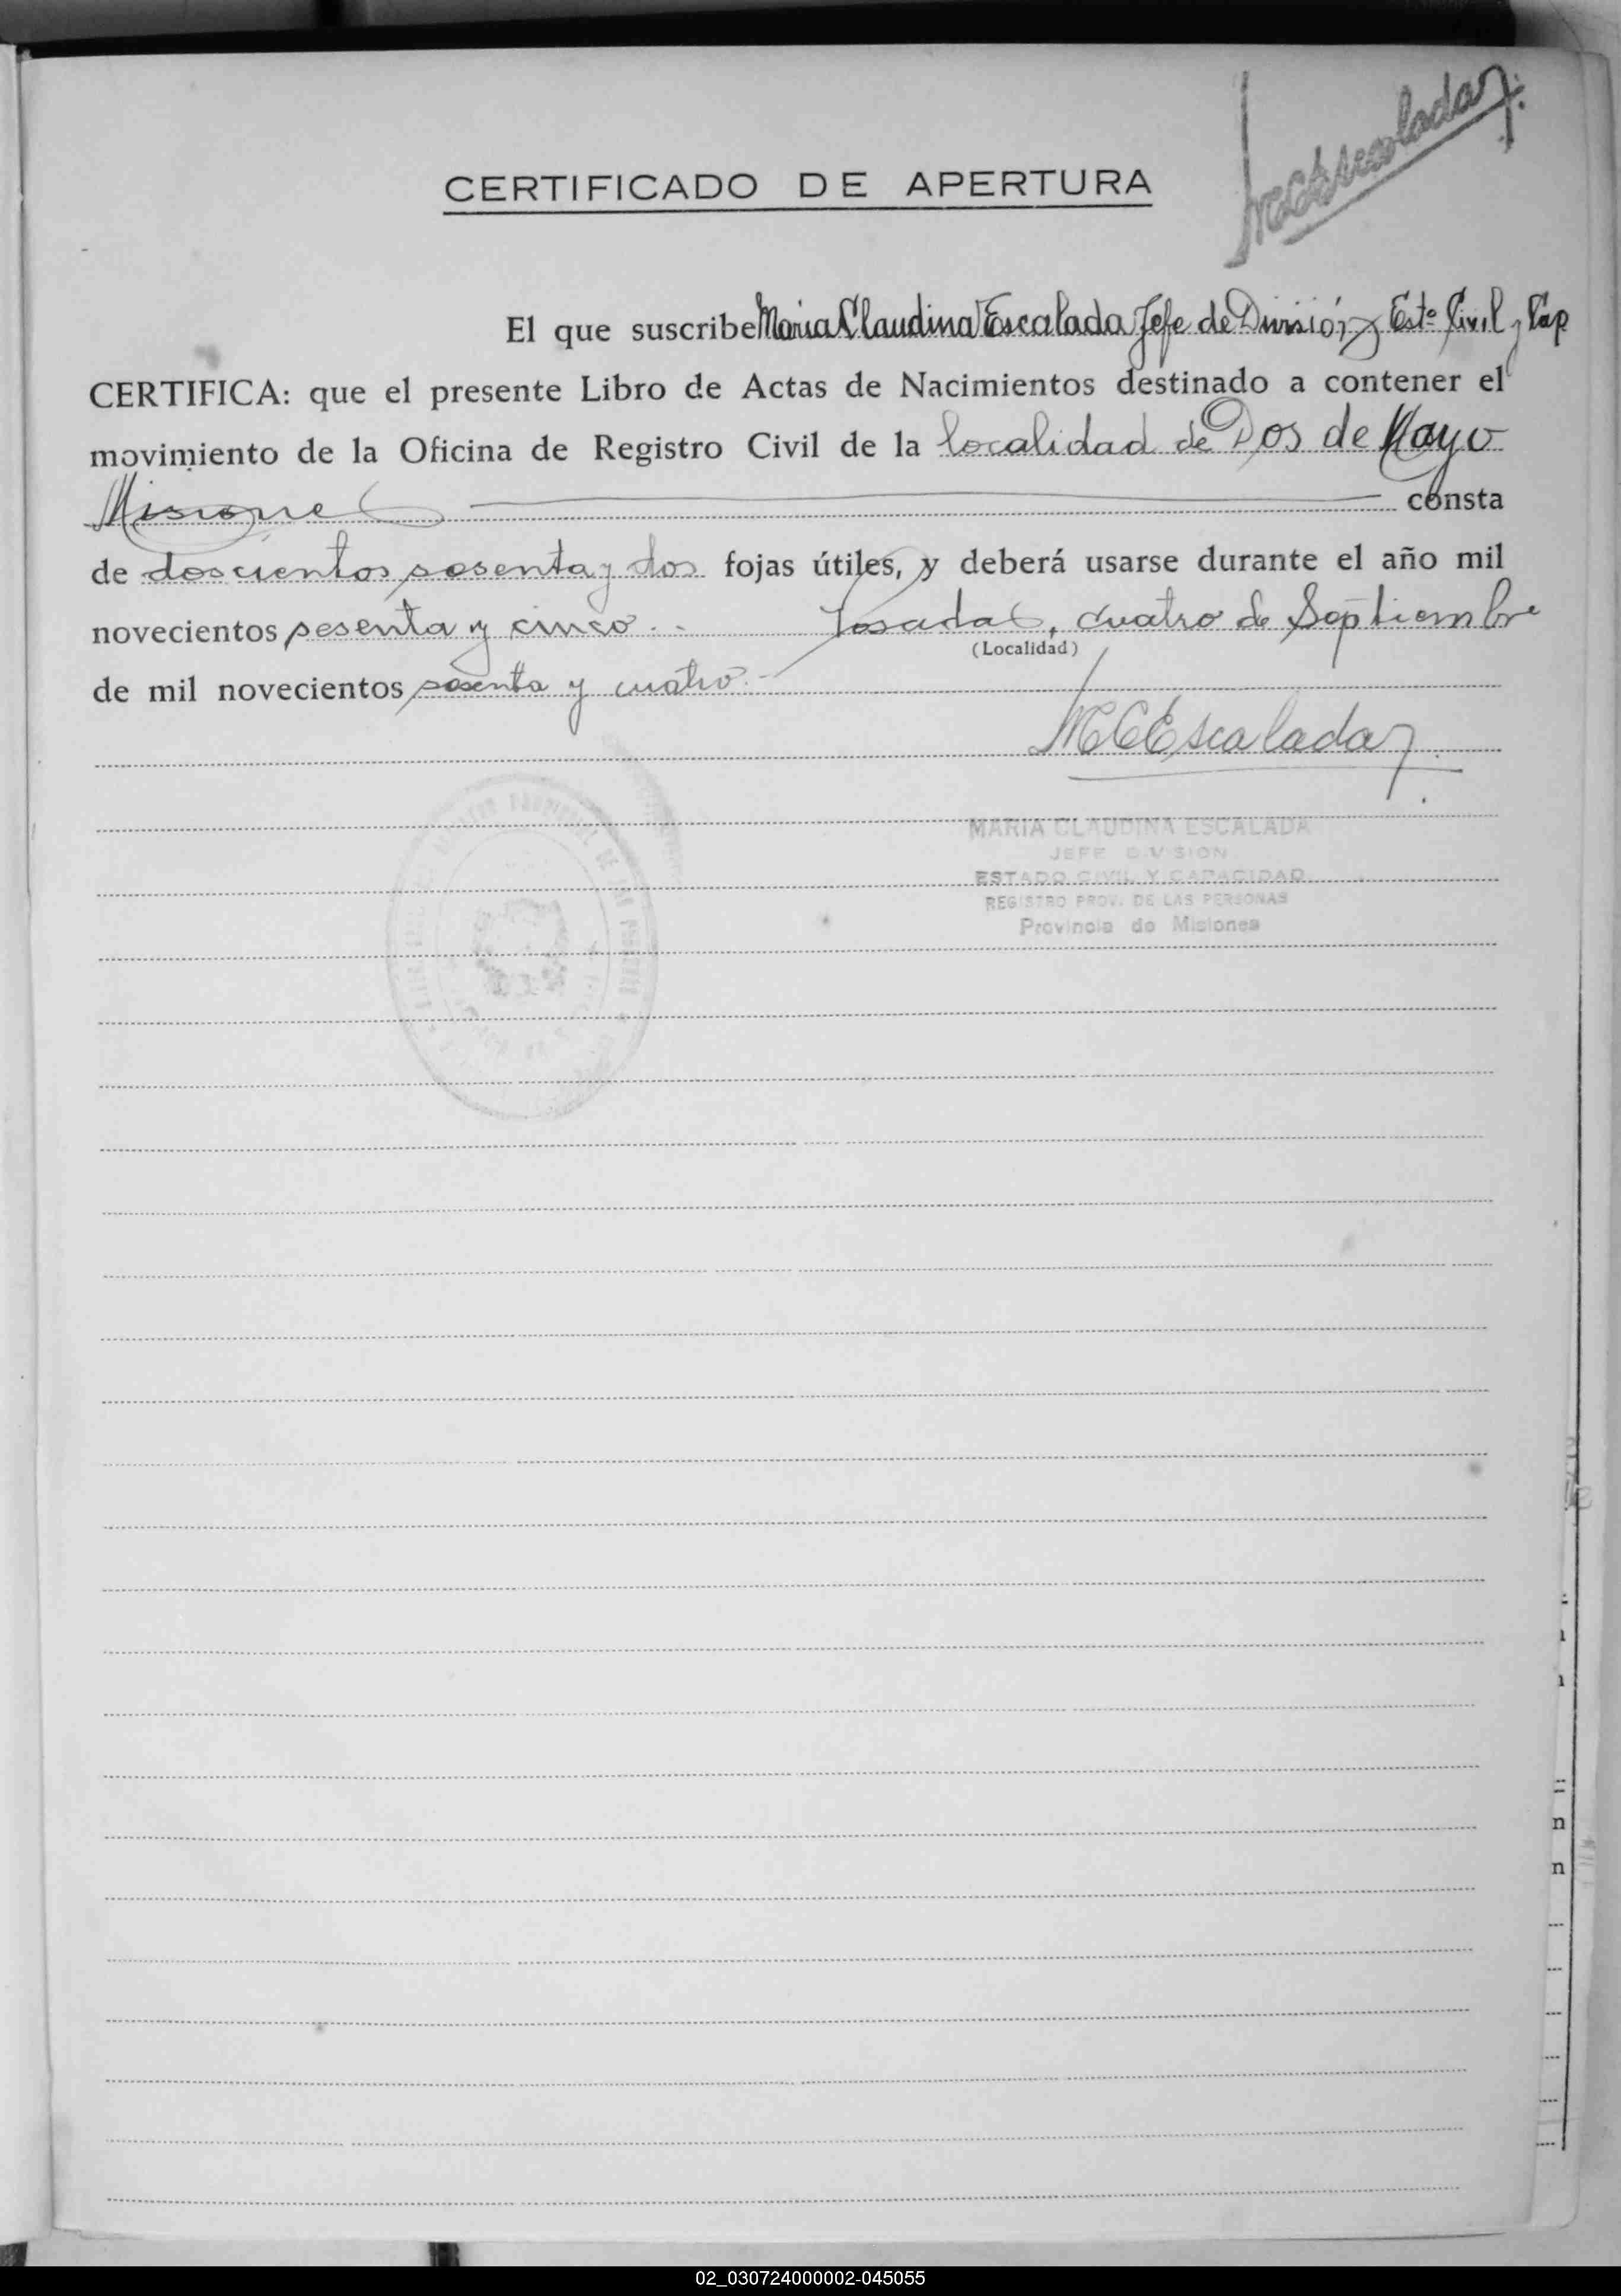 MCEscalada
CERTIFICADO DE APERTURA
El que suscribe Maria Claudina Escalada Jefe de División Estº Civil y Cap
CERTIFICA: que el presente Libro de Actas de Nacimientos destinado a contener el
movimiento de la Oficina de Registro Civil de la localidad de Dos de Mayo
Misiones consta
de doscientos sesenta y dos fojas útiles, y deberá usarse durante el año mil
novecientos sesenta y cinco.- Posadas, cuatro de Septiembre
(Localidad)
de mil novecientos sesenta y cuatro.-
MCEscalada
MARIA CLAUDINA ESCALADA
JEFE DIVISION
ESTADO CIVIL Y CAPACIDAD
REGISTRO PROV. DE LAS PERSONAS
Provincia de Misiones
n
n
02_030724000002-045055